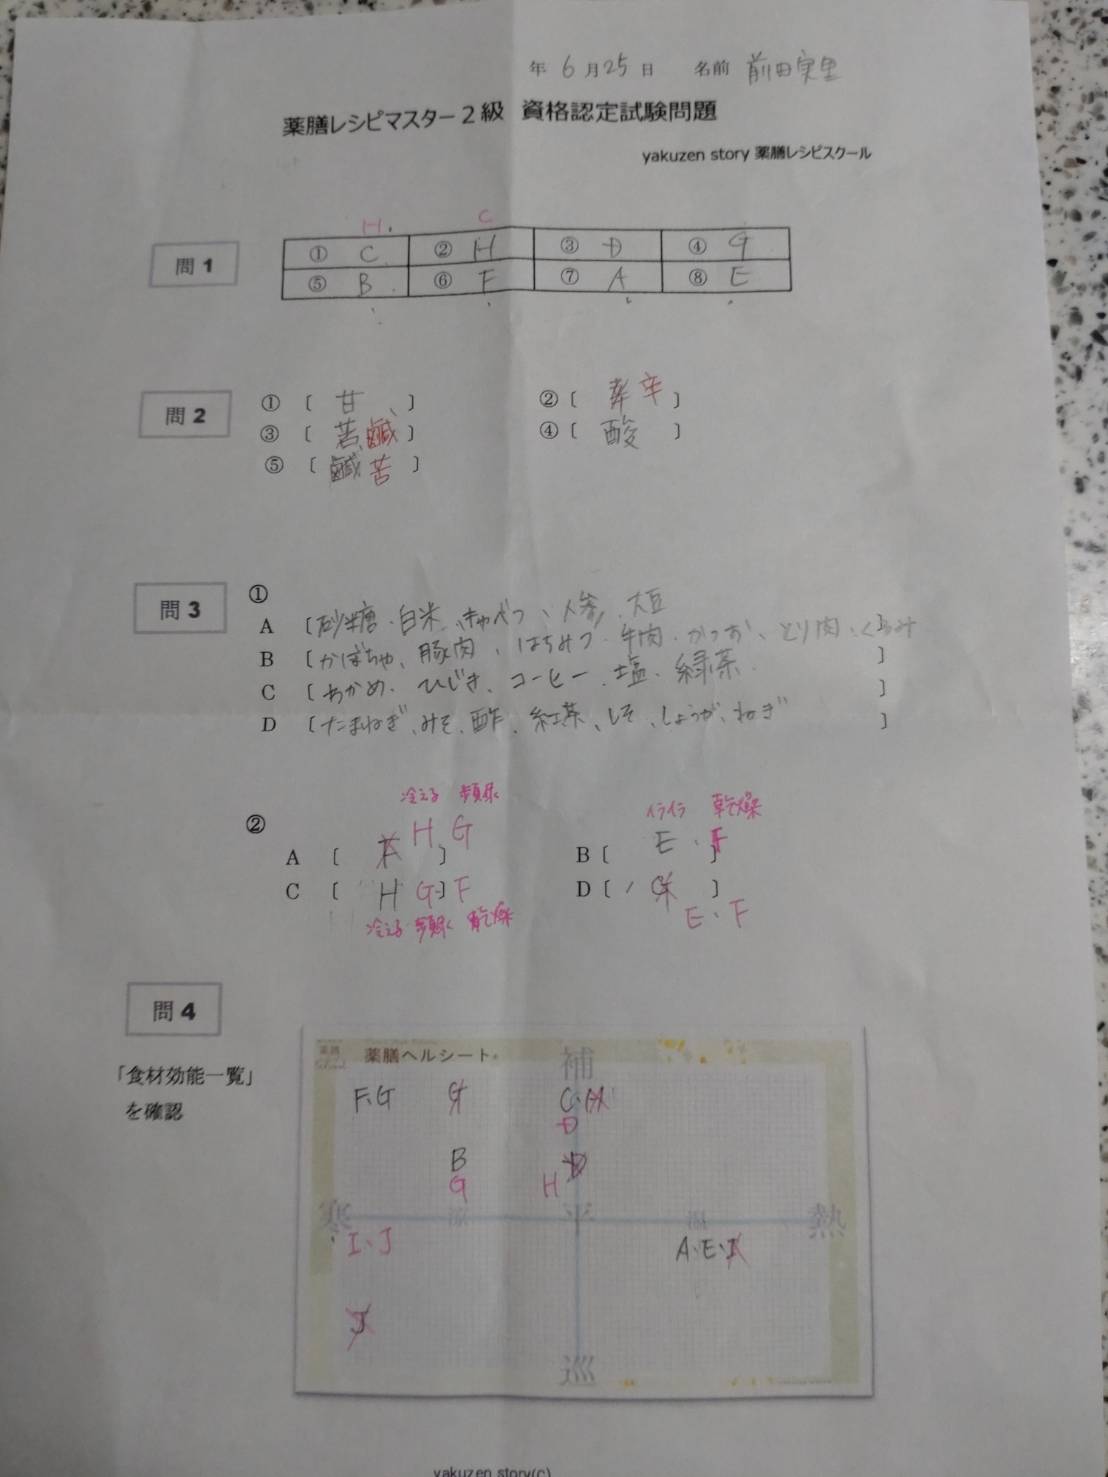 年 6月25日 名前 前田実里
薬膳レシピマスター2級 資格認定試験問題
yakuzen story 薬膳レシピスクール
H C
問1
① C ② H ③ D ④ G
⑤ B ⑥ F ⑦ A ⑧ E
問2
① 〔 甘 〕 ② 〔 辛 〕
③ 〔 苦 鹹 〕 ④ 〔 酸 〕
⑤ 〔 鹹 苦 〕
問3
①
A 〔砂糖・白米、キャベツ、人参、大豆
B 〔かぼちゃ、豚肉、はちみつ・牛肉・かつお、とり肉、くるみ 〕
C 〔わかめ、ひじき、コーヒー、塩・緑茶 〕
D 〔たまねぎ、みそ、酢、紅茶、しそ、しょうが、ねぎ 〕
冷える 頻尿 イライラ 乾燥
②
A 〔 H、G 〕 B 〔 E・F 〕
C 〔 H G F 〕 D 〔 G 〕
冷える 頻尿 乾燥 E・F
問4
「食材効能一覧」
を確認
薬膳ヘルシート
補
F、G G C
D
B
G H
寒 涼 平 温 熱
I、J A・E・I
J
巡
yakuzen story(c)